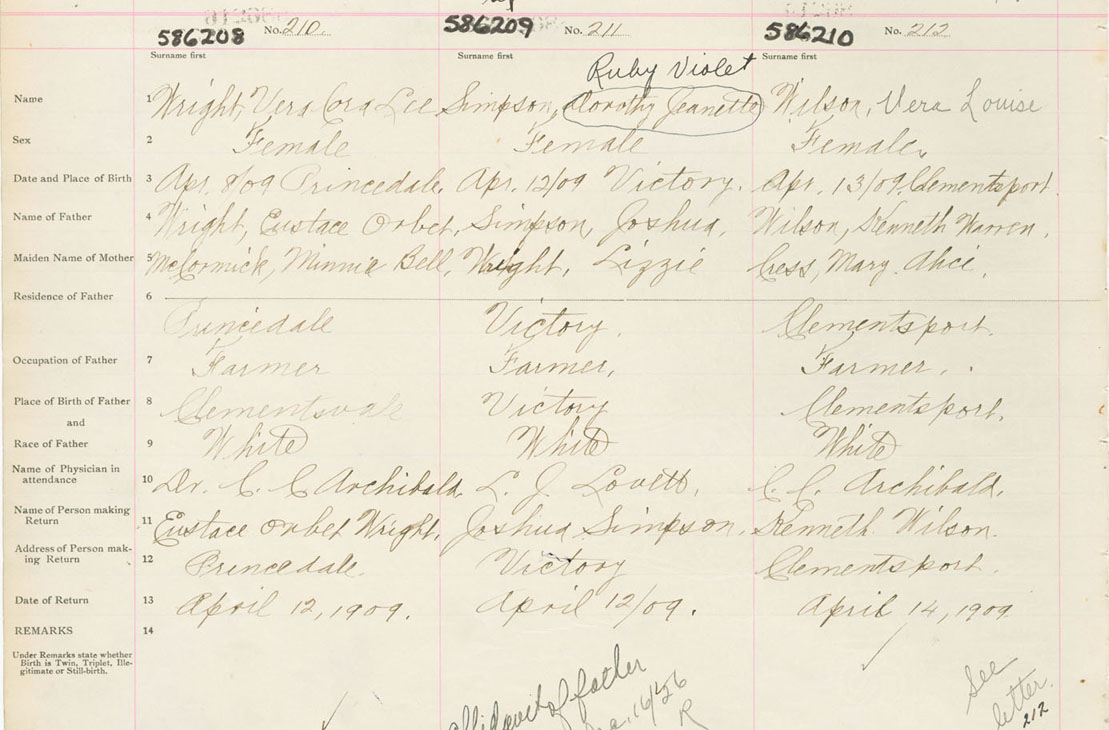 586208 No. 210. 586209 No. 211 586210 No. 212
Surname first Surname first Surname first
Ruby Violet
Name 1 Wright, Vera Cora Lee Simpson, Dorothy Jeanette Wilson, Vera Louise
Sex 2 Female Female Female
Date and Place of Birth 3 Apr. 8/09 Princedale. Apr. 12/09 Victory. Apr. 13/09. Clementsport.
Name of Father 4 Wright, Eustace Orbet, Simpson, Joshua, Wilson, Kenneth Warren.
Maiden Name of Mother 5 McCormick, Minnie Bell, Wright, Lizzie Cress, Mary Alice.
Residence of Father 6
Princedale Victory. Clementsport.
Occupation of Father 7 Farmer Farmer, Farmer.
Place of Birth of Father 8 Clementsvale Victory Clementsport.
and
Race of Father 9 White White White
Name of Physician in
attendance 10 Dr. C. C Archibald. L. J. Lovett, C. C. Archibald.
Name of Person making
Return 11 Eustace Orbet Wright. Joshua Simpson. Kenneth Wilson.
Address of Person mak-
ing Return 12 Princedale. Victory Clementsport.
Date of Return 13 April 12, 1909. April 12/09. April 14, 1909
REMARKS 14
Under Remarks state whether
Birth is Twin, Triplet, Ille-
gitimate or Still-birth.
Affidavit of father
16/26
R
See
letter.
212